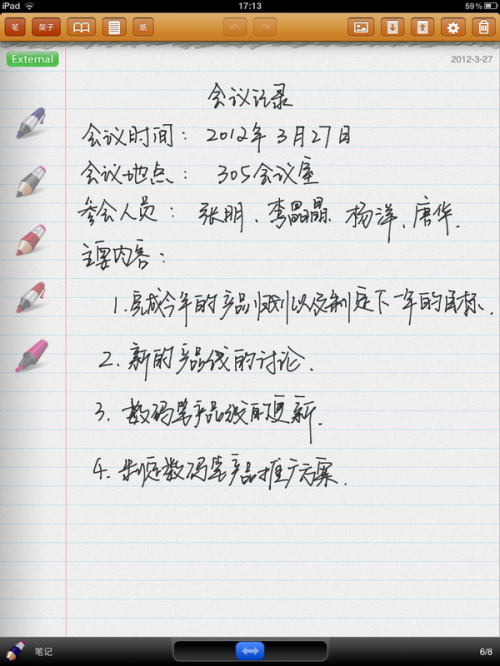 iPad 17:13 59%
笔 架子 纸
External 2012-3-27
会议记录
会议时间：2012年3月27日
会议地点：305会议室
参会人员：张明、李晶晶、杨洋、唐华.
主要内容：
1.完成今年的产品规划以及制定下一年的目标.
2.新的产品线的讨论.
3.数码笔产品线的更新.
4.制定数码笔产品推广方案.
笔记 6/8